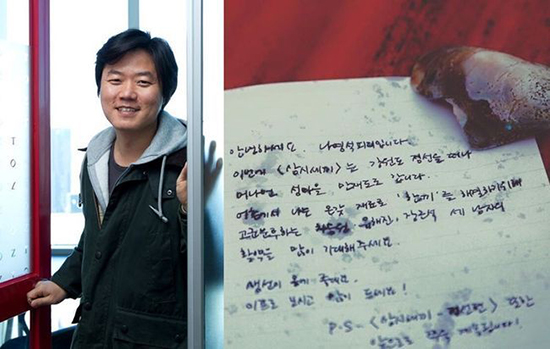 안녕하세요. 나영석피디입니다.
이번에 <삼시세끼>는 강원도 정선을 떠나
머나먼 섬마을 만재도로 갑니다.
어촌에서 나는 온갖 재료로 '한끼'를 해결하기위해
고군분투하는 차승원 유해진, 장근석 세 남자의
활약을 많이 기대해주세요.
생선이 몸에 좋데요.
보시고 많이 드세요!
P.S - <삼시세끼 - 정선편> 또한
앞으로 계속됩니다!